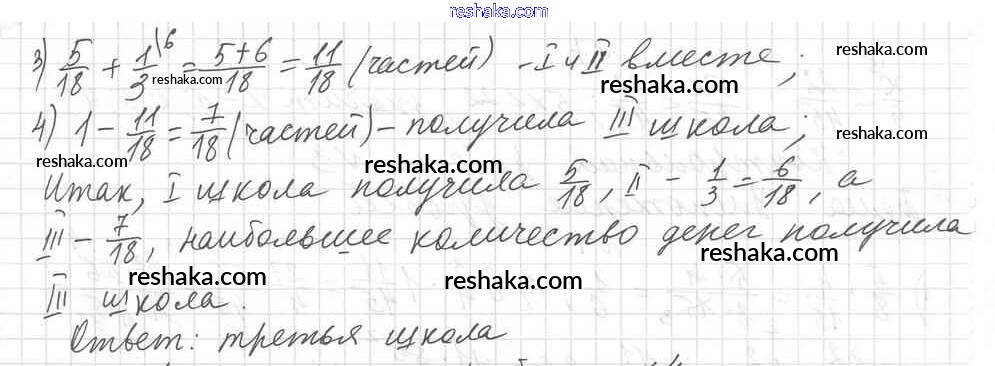 reshaka.com
3) 5/18 + 1/3\6 = (5+6)/18 = 11/18 (частей) - I и II вместе;
reshaka.com reshaka.com reshaka.com
4) 1 - 11/18 = 7/18 (частей) - получила III школа;
reshaka.com reshaka.com reshaka.com
Итак, I школа получила 5/18, II - 1/3 = 6/18, а
III - 7/18, наибольшее количество денег получила
reshaka.com reshaka.com reshaka.com
III школа.
Ответ: третья школа